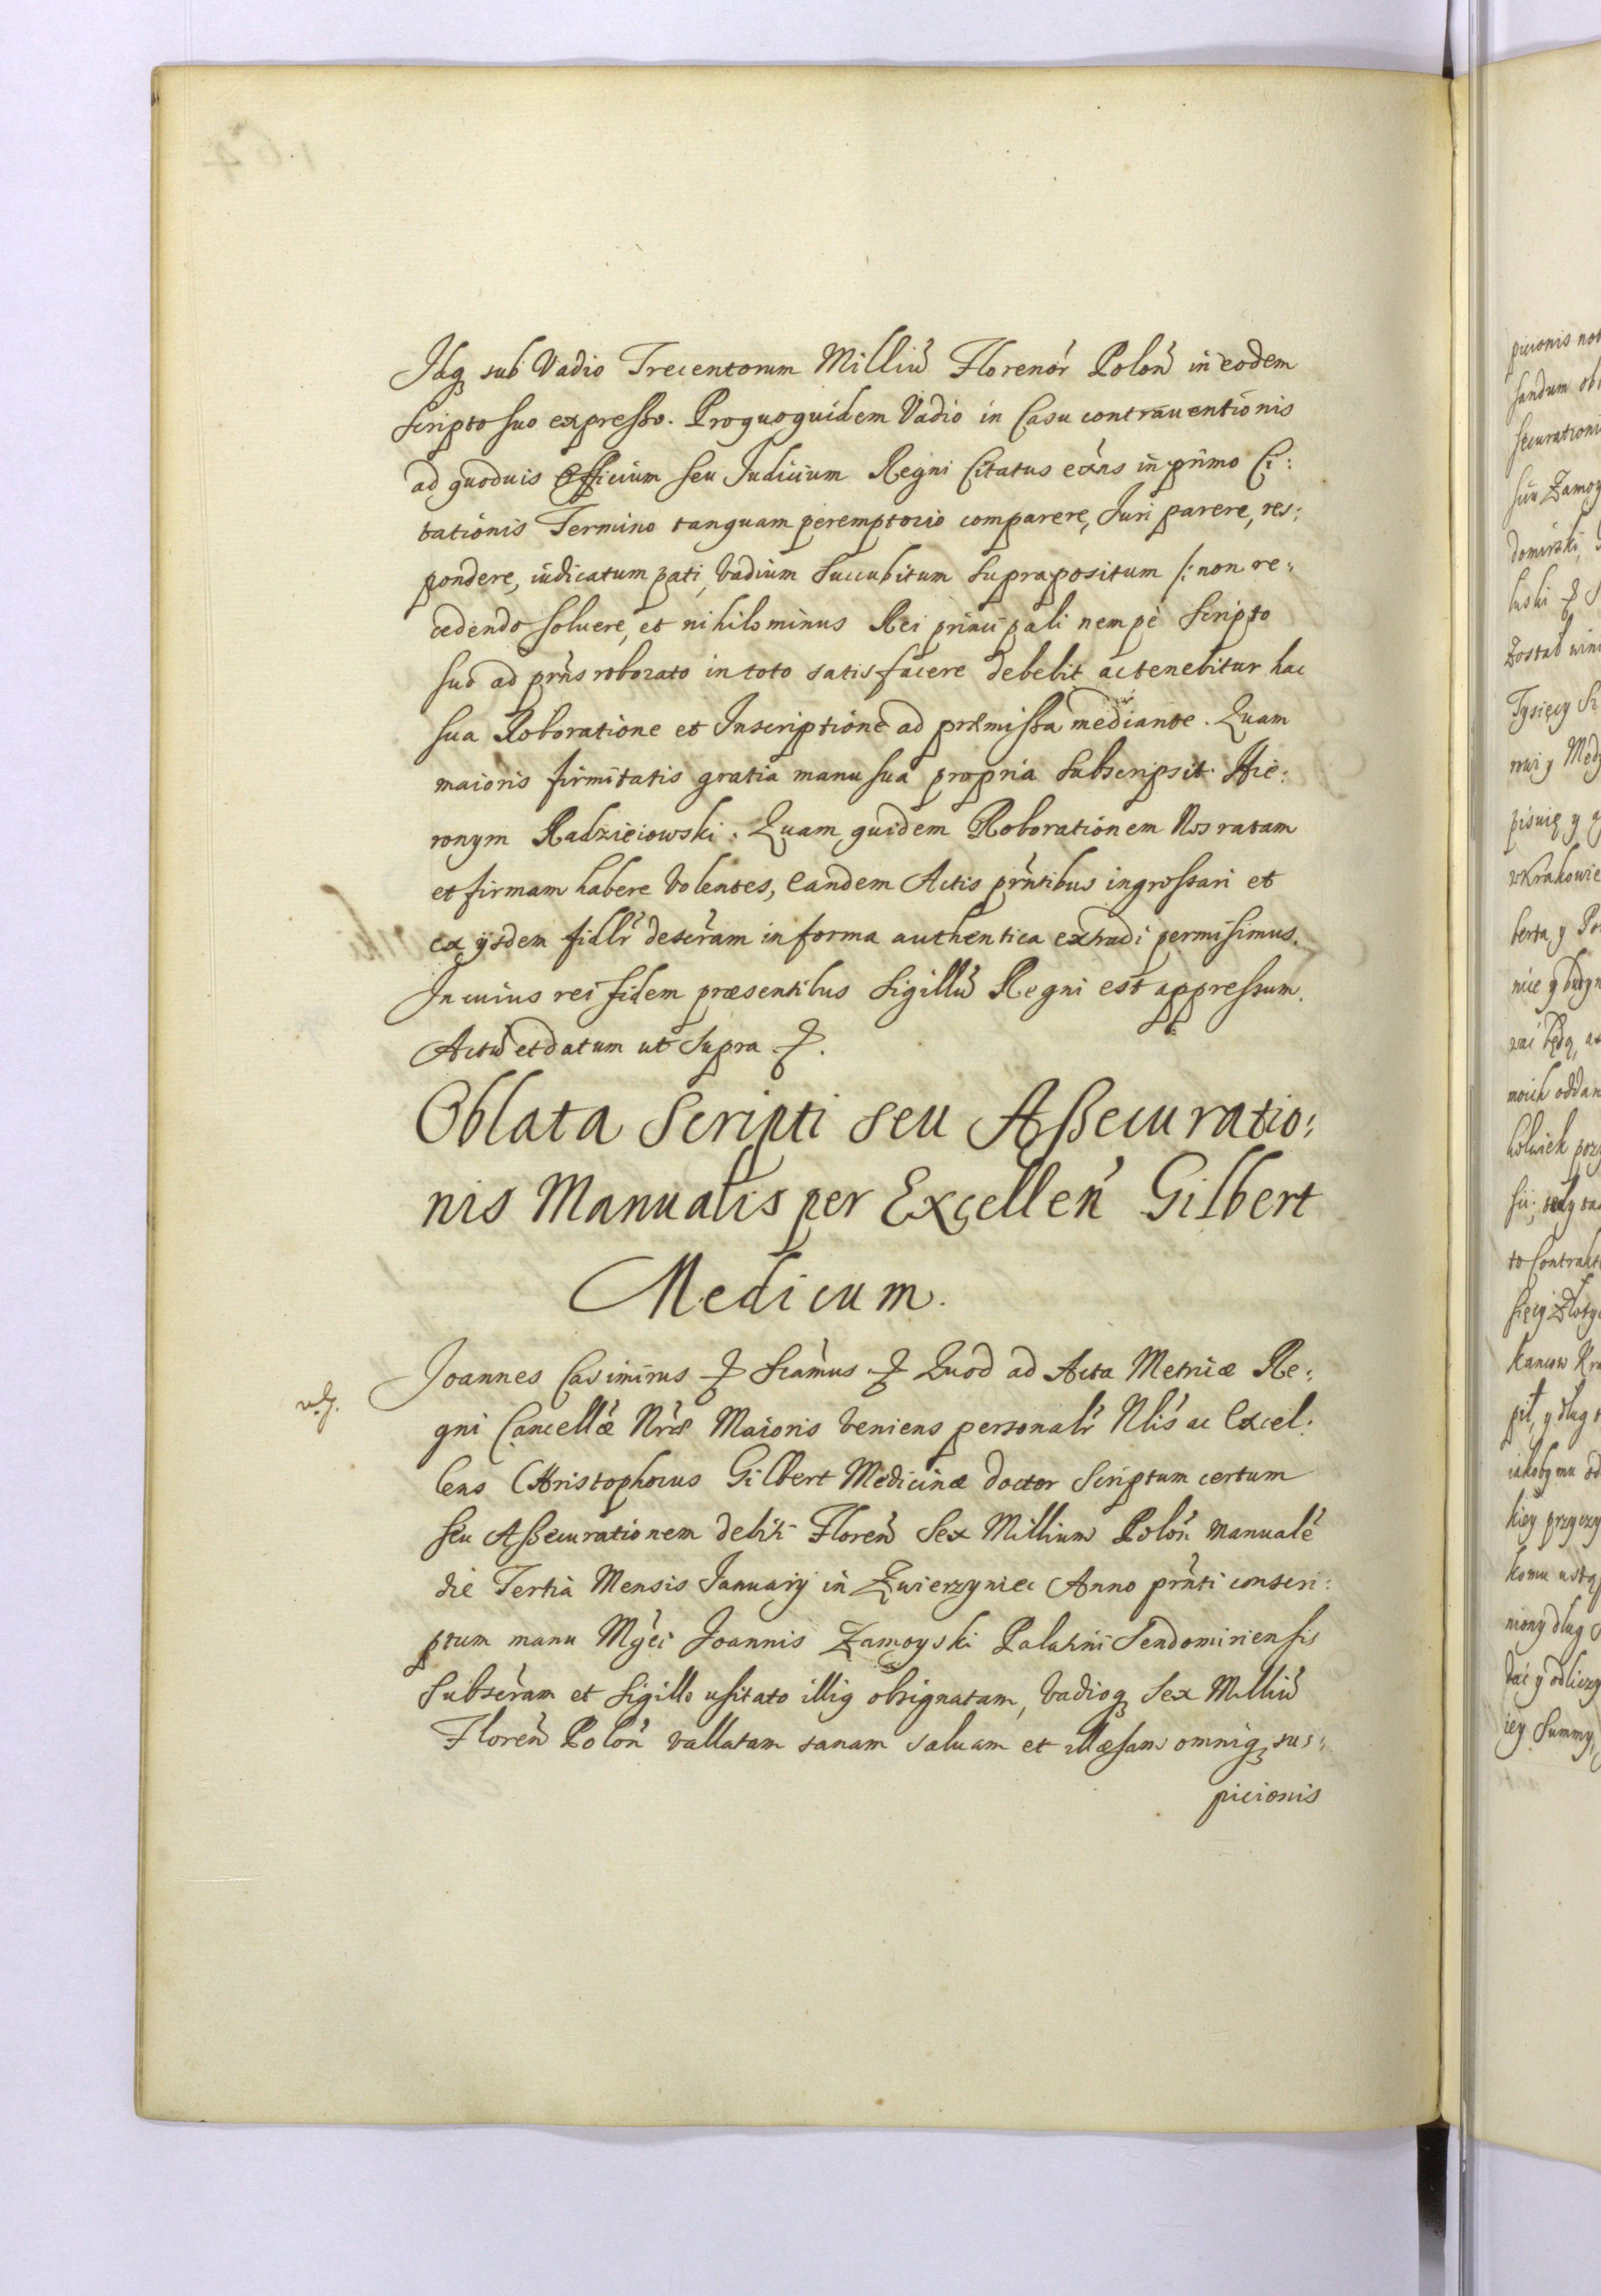 Idq sub Vadio Trecentorum Milliū Florenor Polon in eodem
scripto suo expresso. Proquoquidem Vadio in Casu contrauentionis
ad quoduis Officium seu Judicium Regni Citatus exns in primo Ci:
tationis Termino tanquam peremptorio comparere, Juri parere, res:
pondere, iudicatum pati, Vadium succubitum suprapositum /: non re:
cedendo soluere, et nihilominus Rei principali nempè Scripto
suo ad prns roborato in toto satisfacere debebit ac tenebitur hac
sua Roboratione et Inscriptione ad præmissa mediante. Quam
maioris firmitatis gratia manu sua propria subscripsit. Hie:
ronym Radzieiowski. Quam quidem Roborationem Nos ratam
et firmam habere Volentes, eandem Actis prntibus ingrossari et
ex ijsdem fidlr descram in forma authentica extradi permisimus.
In cuius rei fidem præsentibus Sigillū Regni est appressum.
Actū et datum ut supra
Oblata Scripti seu Assecuratio:
nis Manualis per Excellen Gilbert
Medicum.
Joannes Casimirus Scamus Quod ad Acta Metricæ Re:
gni Cancellæ Nræ Maioris Veniens personalr Nlis ac Excel:
lens Christophorus Gilbert Medicinæ doctor Scriptum certum
seu Assecurationem debiti Floren Sex Millium Polon Manuale
die Tertia Mensis Januarij in Zwierzyniec Anno prnti conscri:
ptum manu Mgci Joannis Zamoyski Palatini Sendomiriensis
Subscram et Sigillo usitato illiq obsignatam, Vadioq Sex Milliū
Floren Polon vallatam sanam saluam et illæsam omniq sus:
picionis